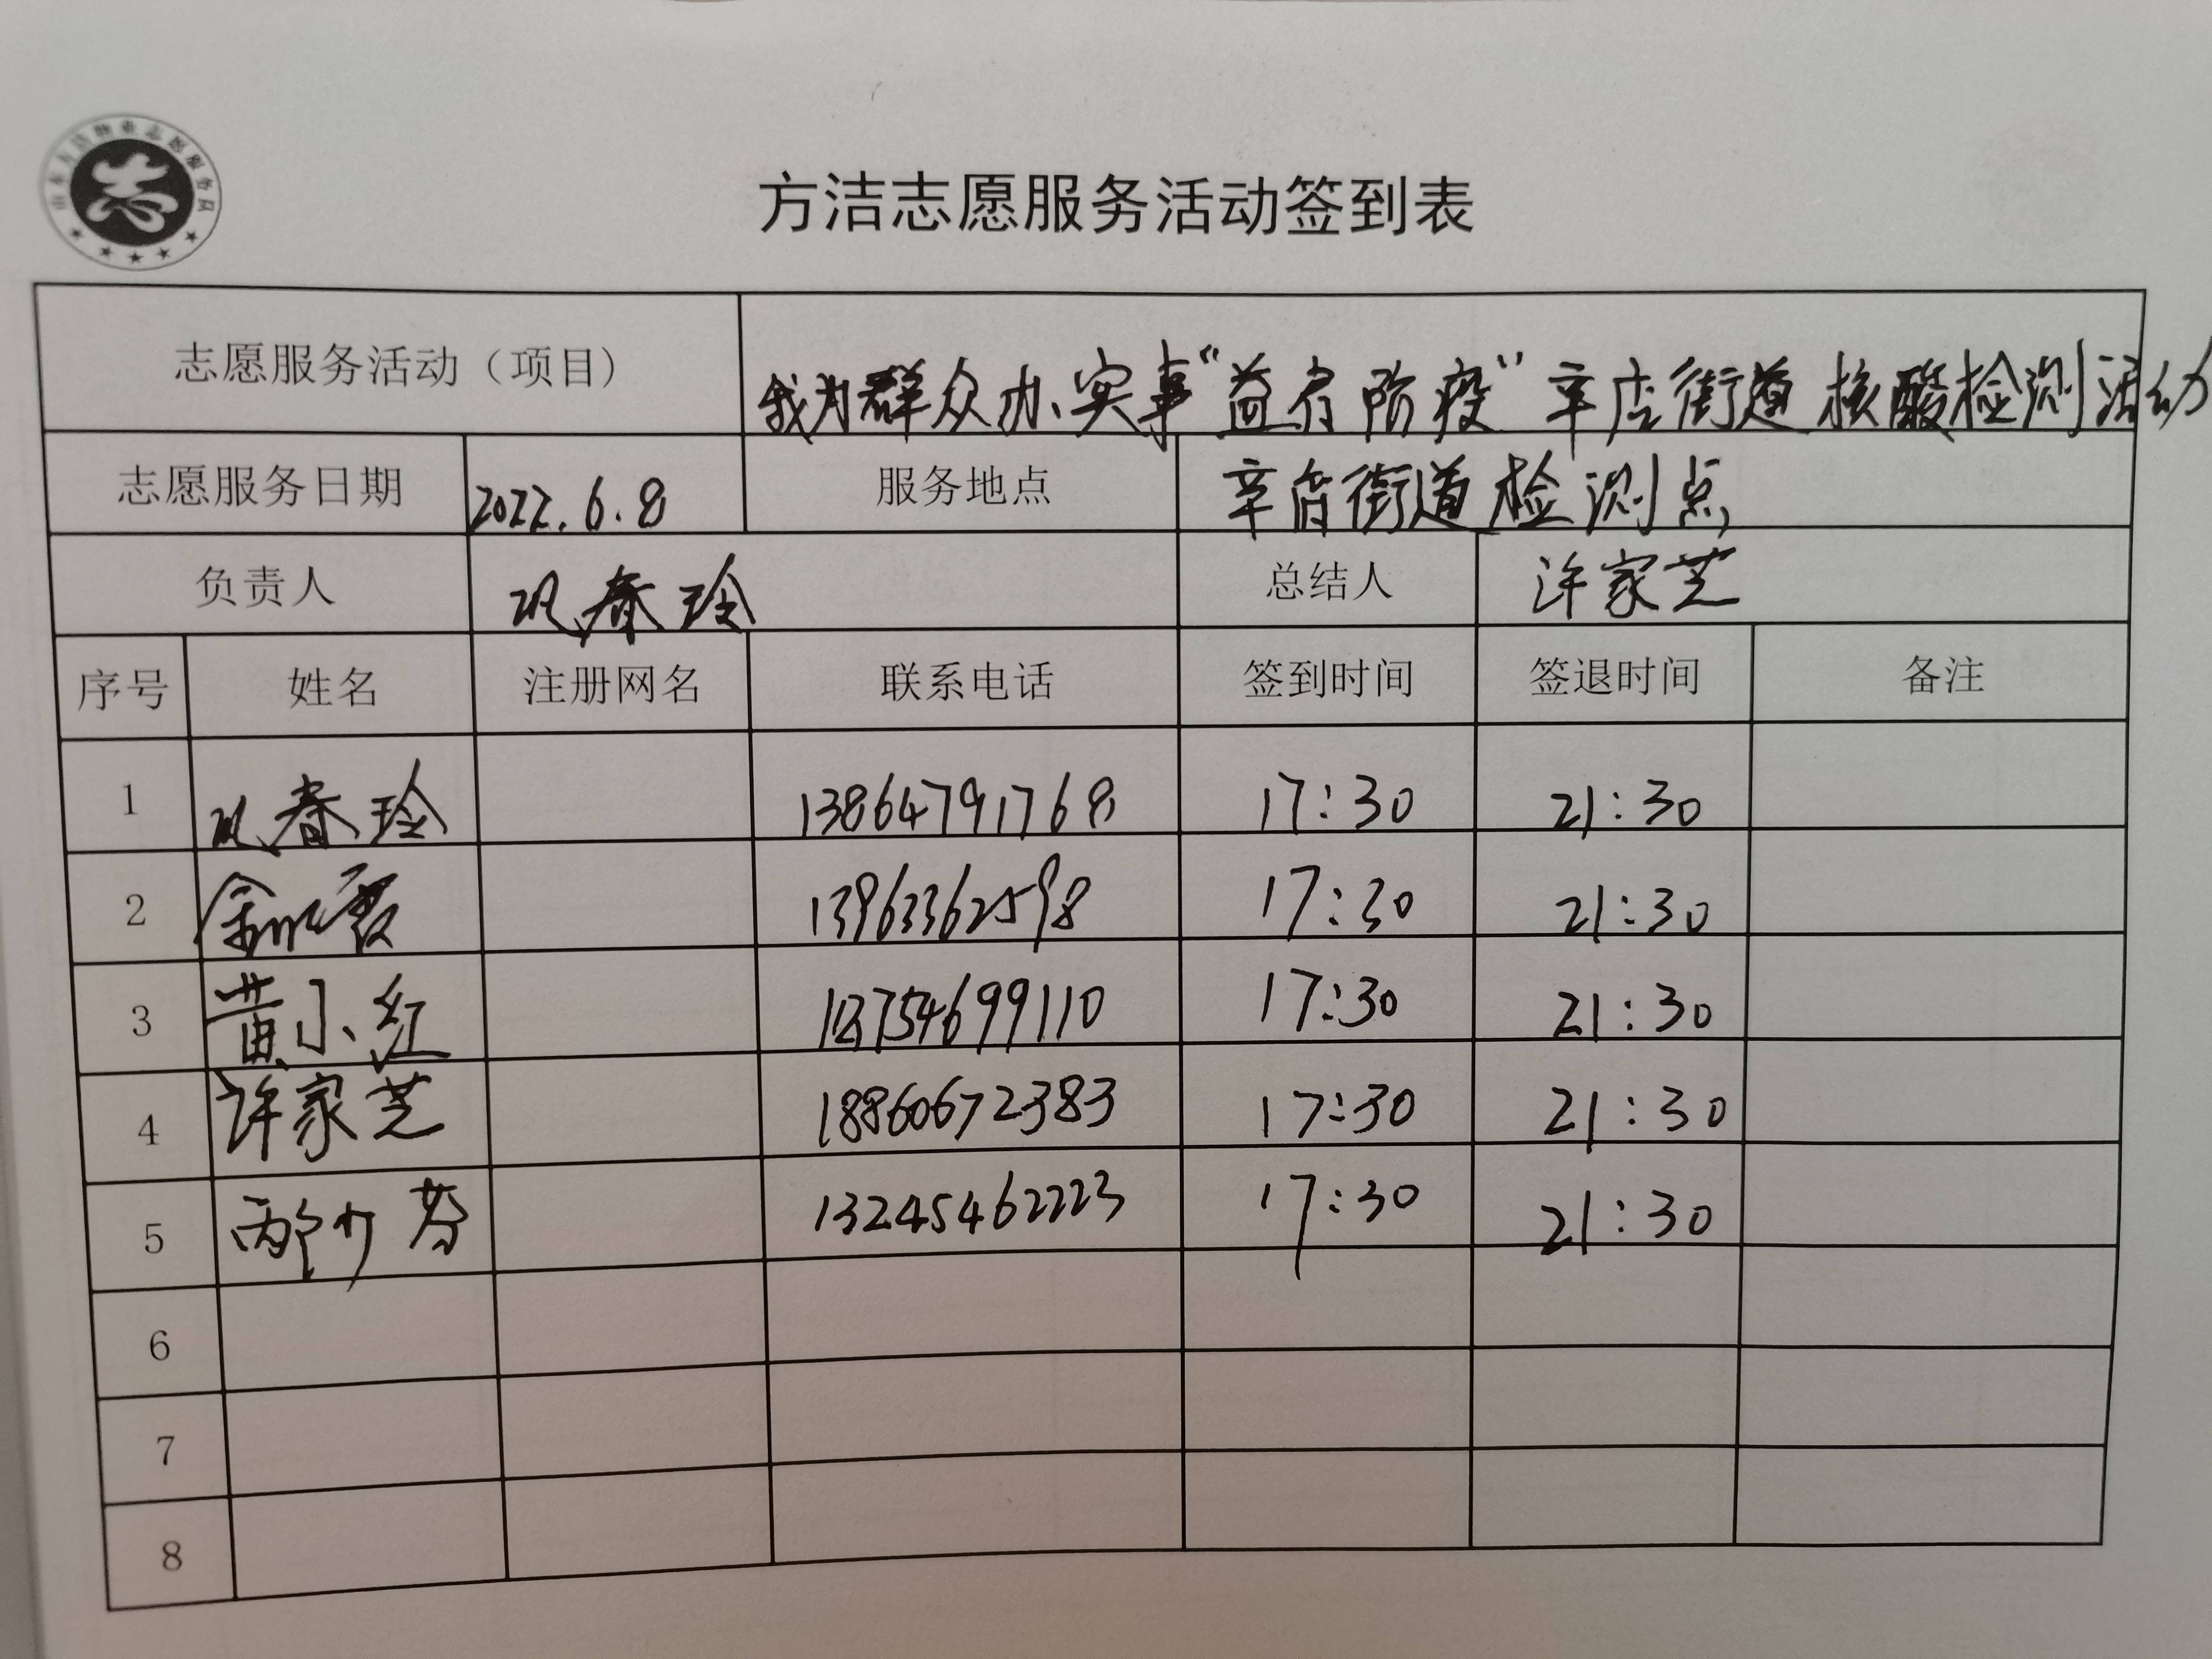 山东方洁物业志愿服务队
方洁志愿服务活动签到表
志愿服务活动（项目） 我为群众办实事“益有防疫”辛店街道核酸检测活动
志愿服务日期 2022.6.8 服务地点 辛店街道检测点
负责人 巩春玲 总结人 许家芝
序号 姓名 注册网名 联系电话 签到时间 签退时间 备注
1 巩春玲 13864791768 17:30 21:30
2 13963362598 17:30 21:30
3 黄小红 17:30 21:30
4 许家芝 18860672383 17:30 21:30
5 13245462223 17:30 21:30
6
7
8